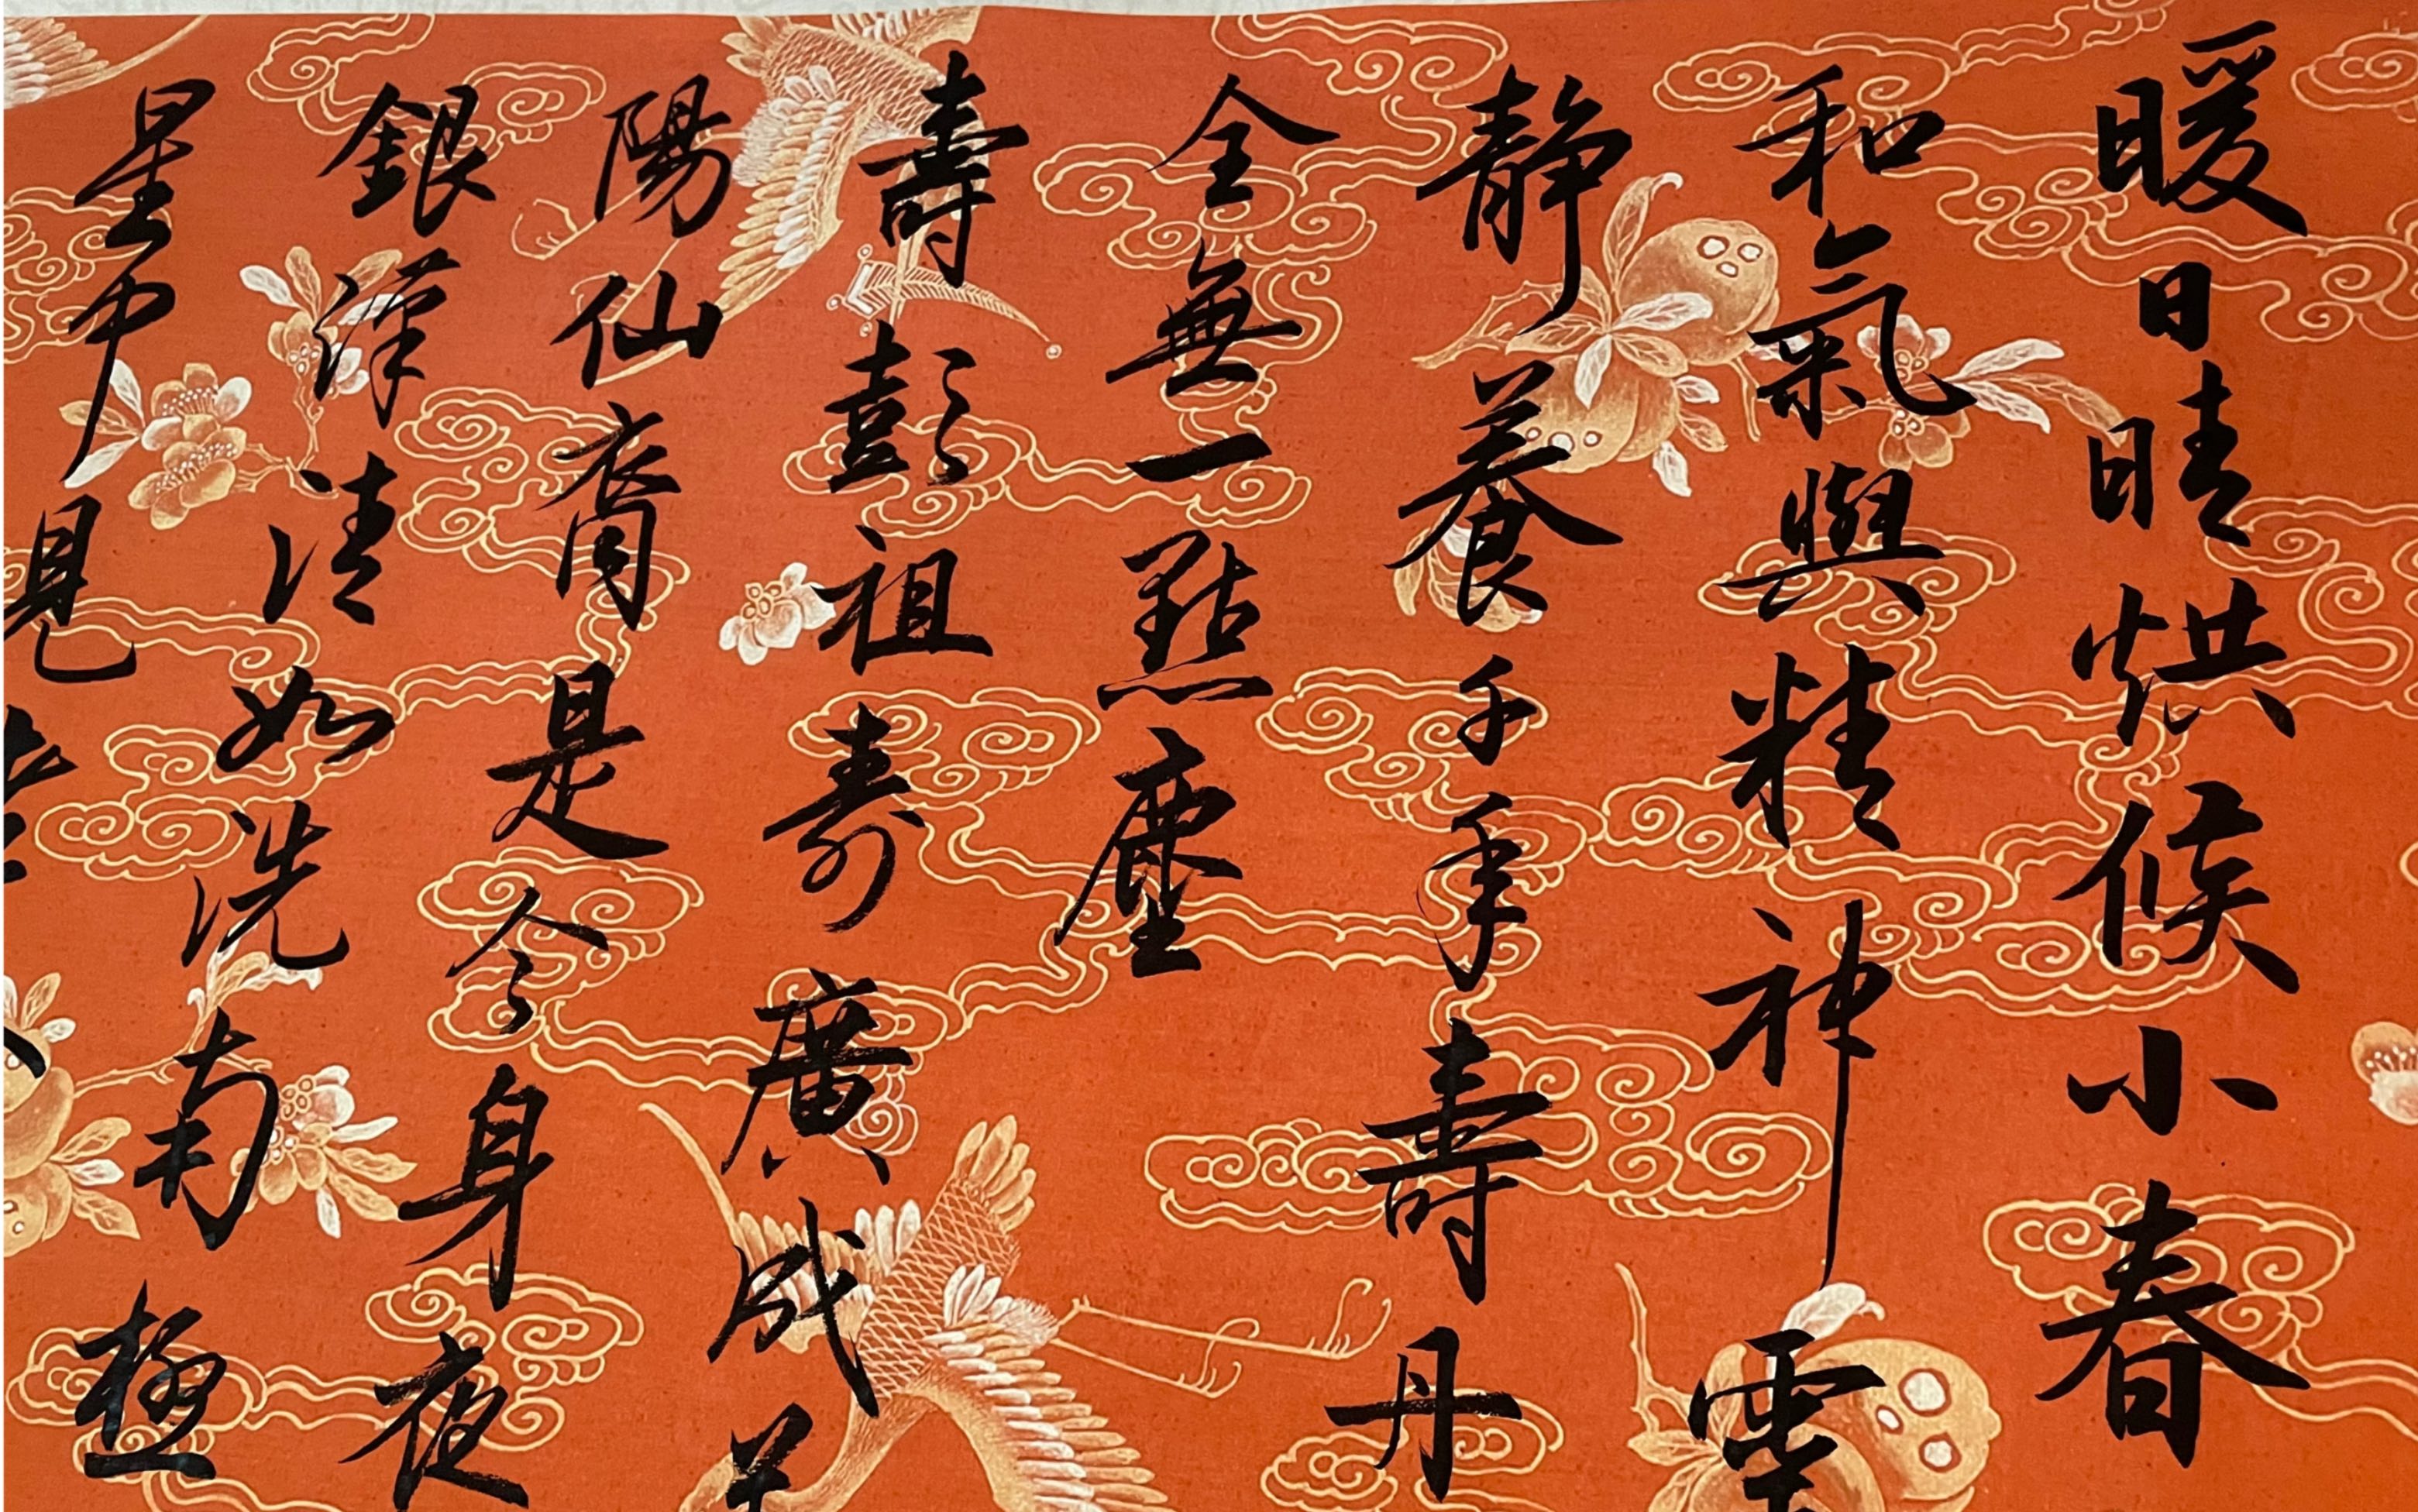 暖日晴烘候小春
和氣與精神
静養千年壽丹
全無一點塵
壽彭祖寿廣成
陽仙裔是今身夜
銀漢清如洗南極
星中見